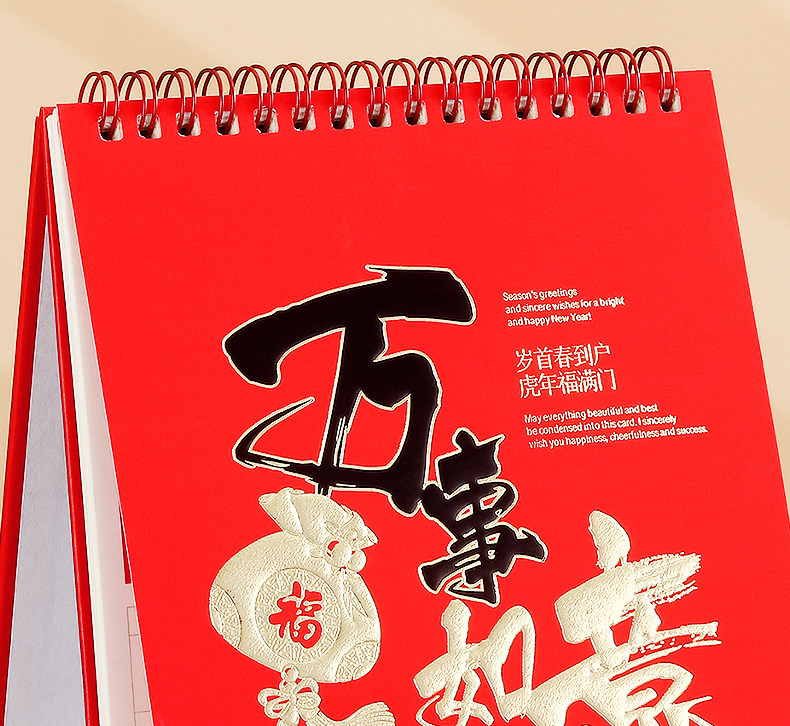 万事
如意
福
Season's greetings
and sincere wishes for a bright
and happy New Year!
岁首春到户
虎年福满门
May everything beautiful and best
be condensed into this card. I sincerely
wish you happiness, cheerfulness and success.